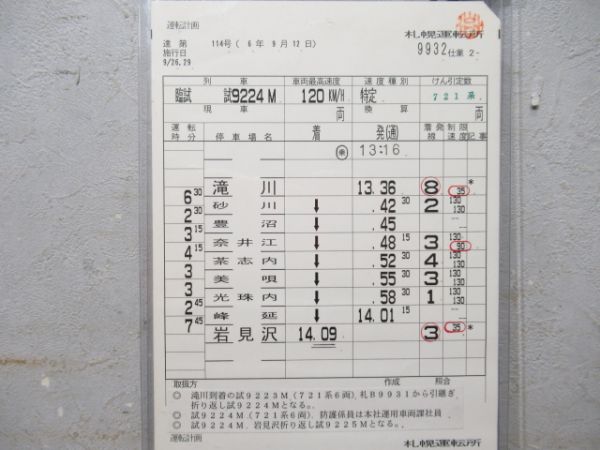 運転計画
達第 114号(6年9月12日)
施行日
9/26,29
札幌運転所
9932仕業 2-
列車 車両最高速度 速度種別 けん引定数
臨試 試9224M 120KM/H 特定 721系
現車 両 換算 両
運転時分 停車場名 着 発(通) 着発線 制限速度 記事
乗 13:16
滝川 13.36 8 35 *
6 30
砂川 ↓ .42 30 2 130 130
2 30
豊沼 ↓ .45
3 15
奈井江 ↓ .48 15 3 130 90
4 15
茶志内 ↓ .52 30 4 130 130
3
美唄 ↓ .55 30 3 130 130
3
光珠内 ↓ .58 30 1 130 130
2 45
峰延 ↓ 14.01 15
7 45
岩見沢 14.09 3 35 *
取扱方 作成 照合
◎ 滝川到着の試9223M(721系6両)、札B9931から引継ぎ
折り返し試9224Mとなる。
◎ 試9224M(721系6両)、防護係員は本社運用車両課社員
◎ 試9224M、岩見沢折り返し試9225Mとなる。
運転計画
札幌運転所